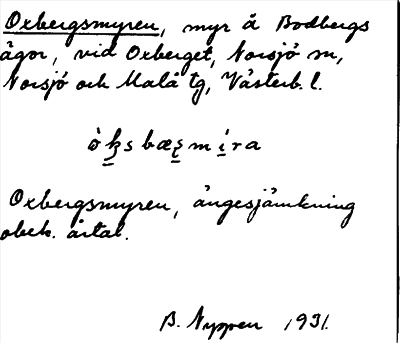 Oxbergsmyren, myr å Bodbergs
ägor, vid Oxberget, Norsjö sn,
Norsjö och Malå tg, Västerb. l.
òk̲sbæʂ̲mí̲ra
Oxbergsmyren, ängesjämkning
obek. årtal.
B. Nygren 1931.